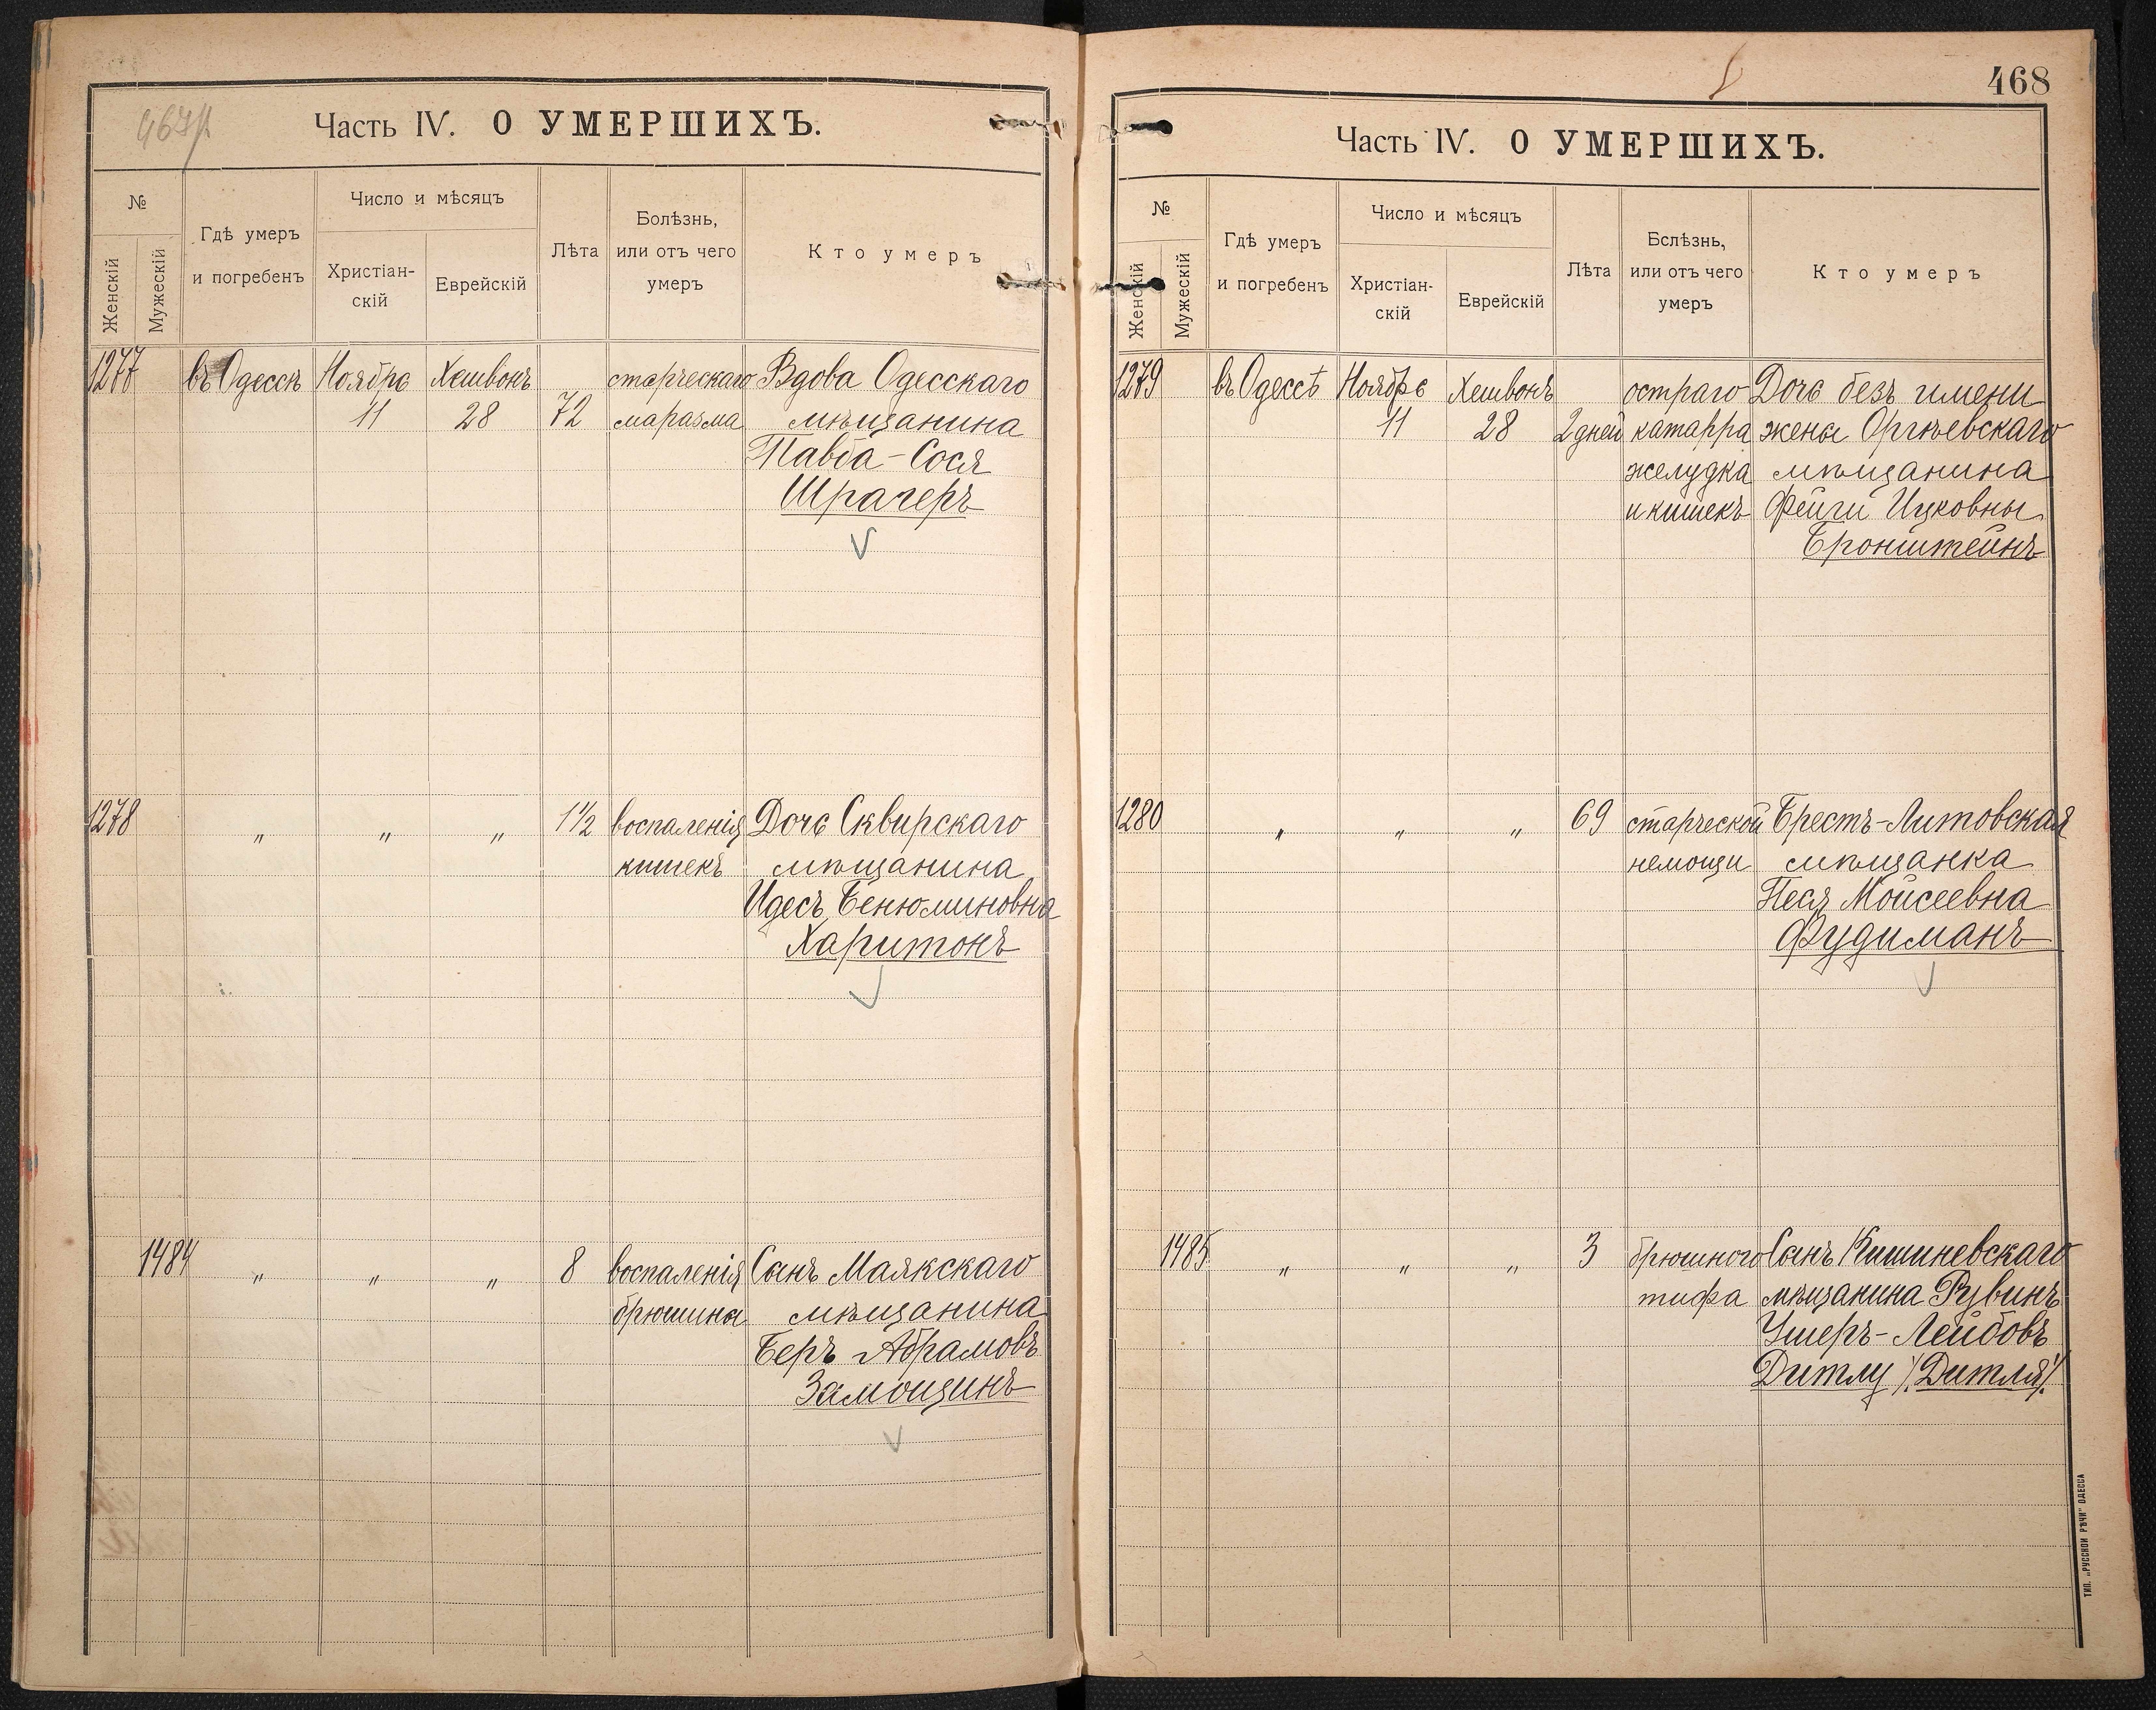 467/1
Часть IV. О УМЕРШИХЪ.
№
Женскій
Мужескій
Гдѣ умеръ
и погребенъ
Число и мѣсяцъ
Христіан-
скій
Еврейскій
Лѣта
Болѣзнь,
или отъ чего
умеръ
Кто умеръ
1277 въ Одессѣ Ноября Хешвонъ старческаго Вдова Одесскаго
11 28 72 маразма мѣщанина
Павба-Сося
Шрагеръ
1278 „ „ „ 1½ воспаленія Дочь Сквирскаго
кишекъ мѣщанина
Идесъ Бенюминовна
Харитонъ
1484 „ „ „ 8 воспаленія Сынъ Маякскаго
брюшины мѣщанина
Беръ Абрамовъ
Замощинъ
468
Часть IV. О УМЕРШИХЪ.
№
Женскій
Мужескій
Гдѣ умеръ
и погребенъ
Число и мѣсяцъ
Христіан-
скій
Еврейскій
Лѣта
Бслѣзнь,
или отъ чего
умеръ
Кто умеръ
1279 въ Одессѣ Ноябрь Хешвонъ остраго Дочь безъ имени
11 28 2 дней катарра жены Оргѣевскаго
желудка мѣщанина
и кишекъ Фейги Ицковны
Бронштейнъ
1280 „ „ „ 69 старческой Брестъ-Литовская
немощи мѣщанка
Песя Мойсеевна
Фудиманъ
1485 „ „ „ 3 брюшного Сынъ Кишиневскаго
тифа мѣщанина Рувинъ
Ушеръ-Лейбовъ
Дитлу /Дитля/.
ТИП. „РУССКОЙ РѢЧИ" ОДЕССА